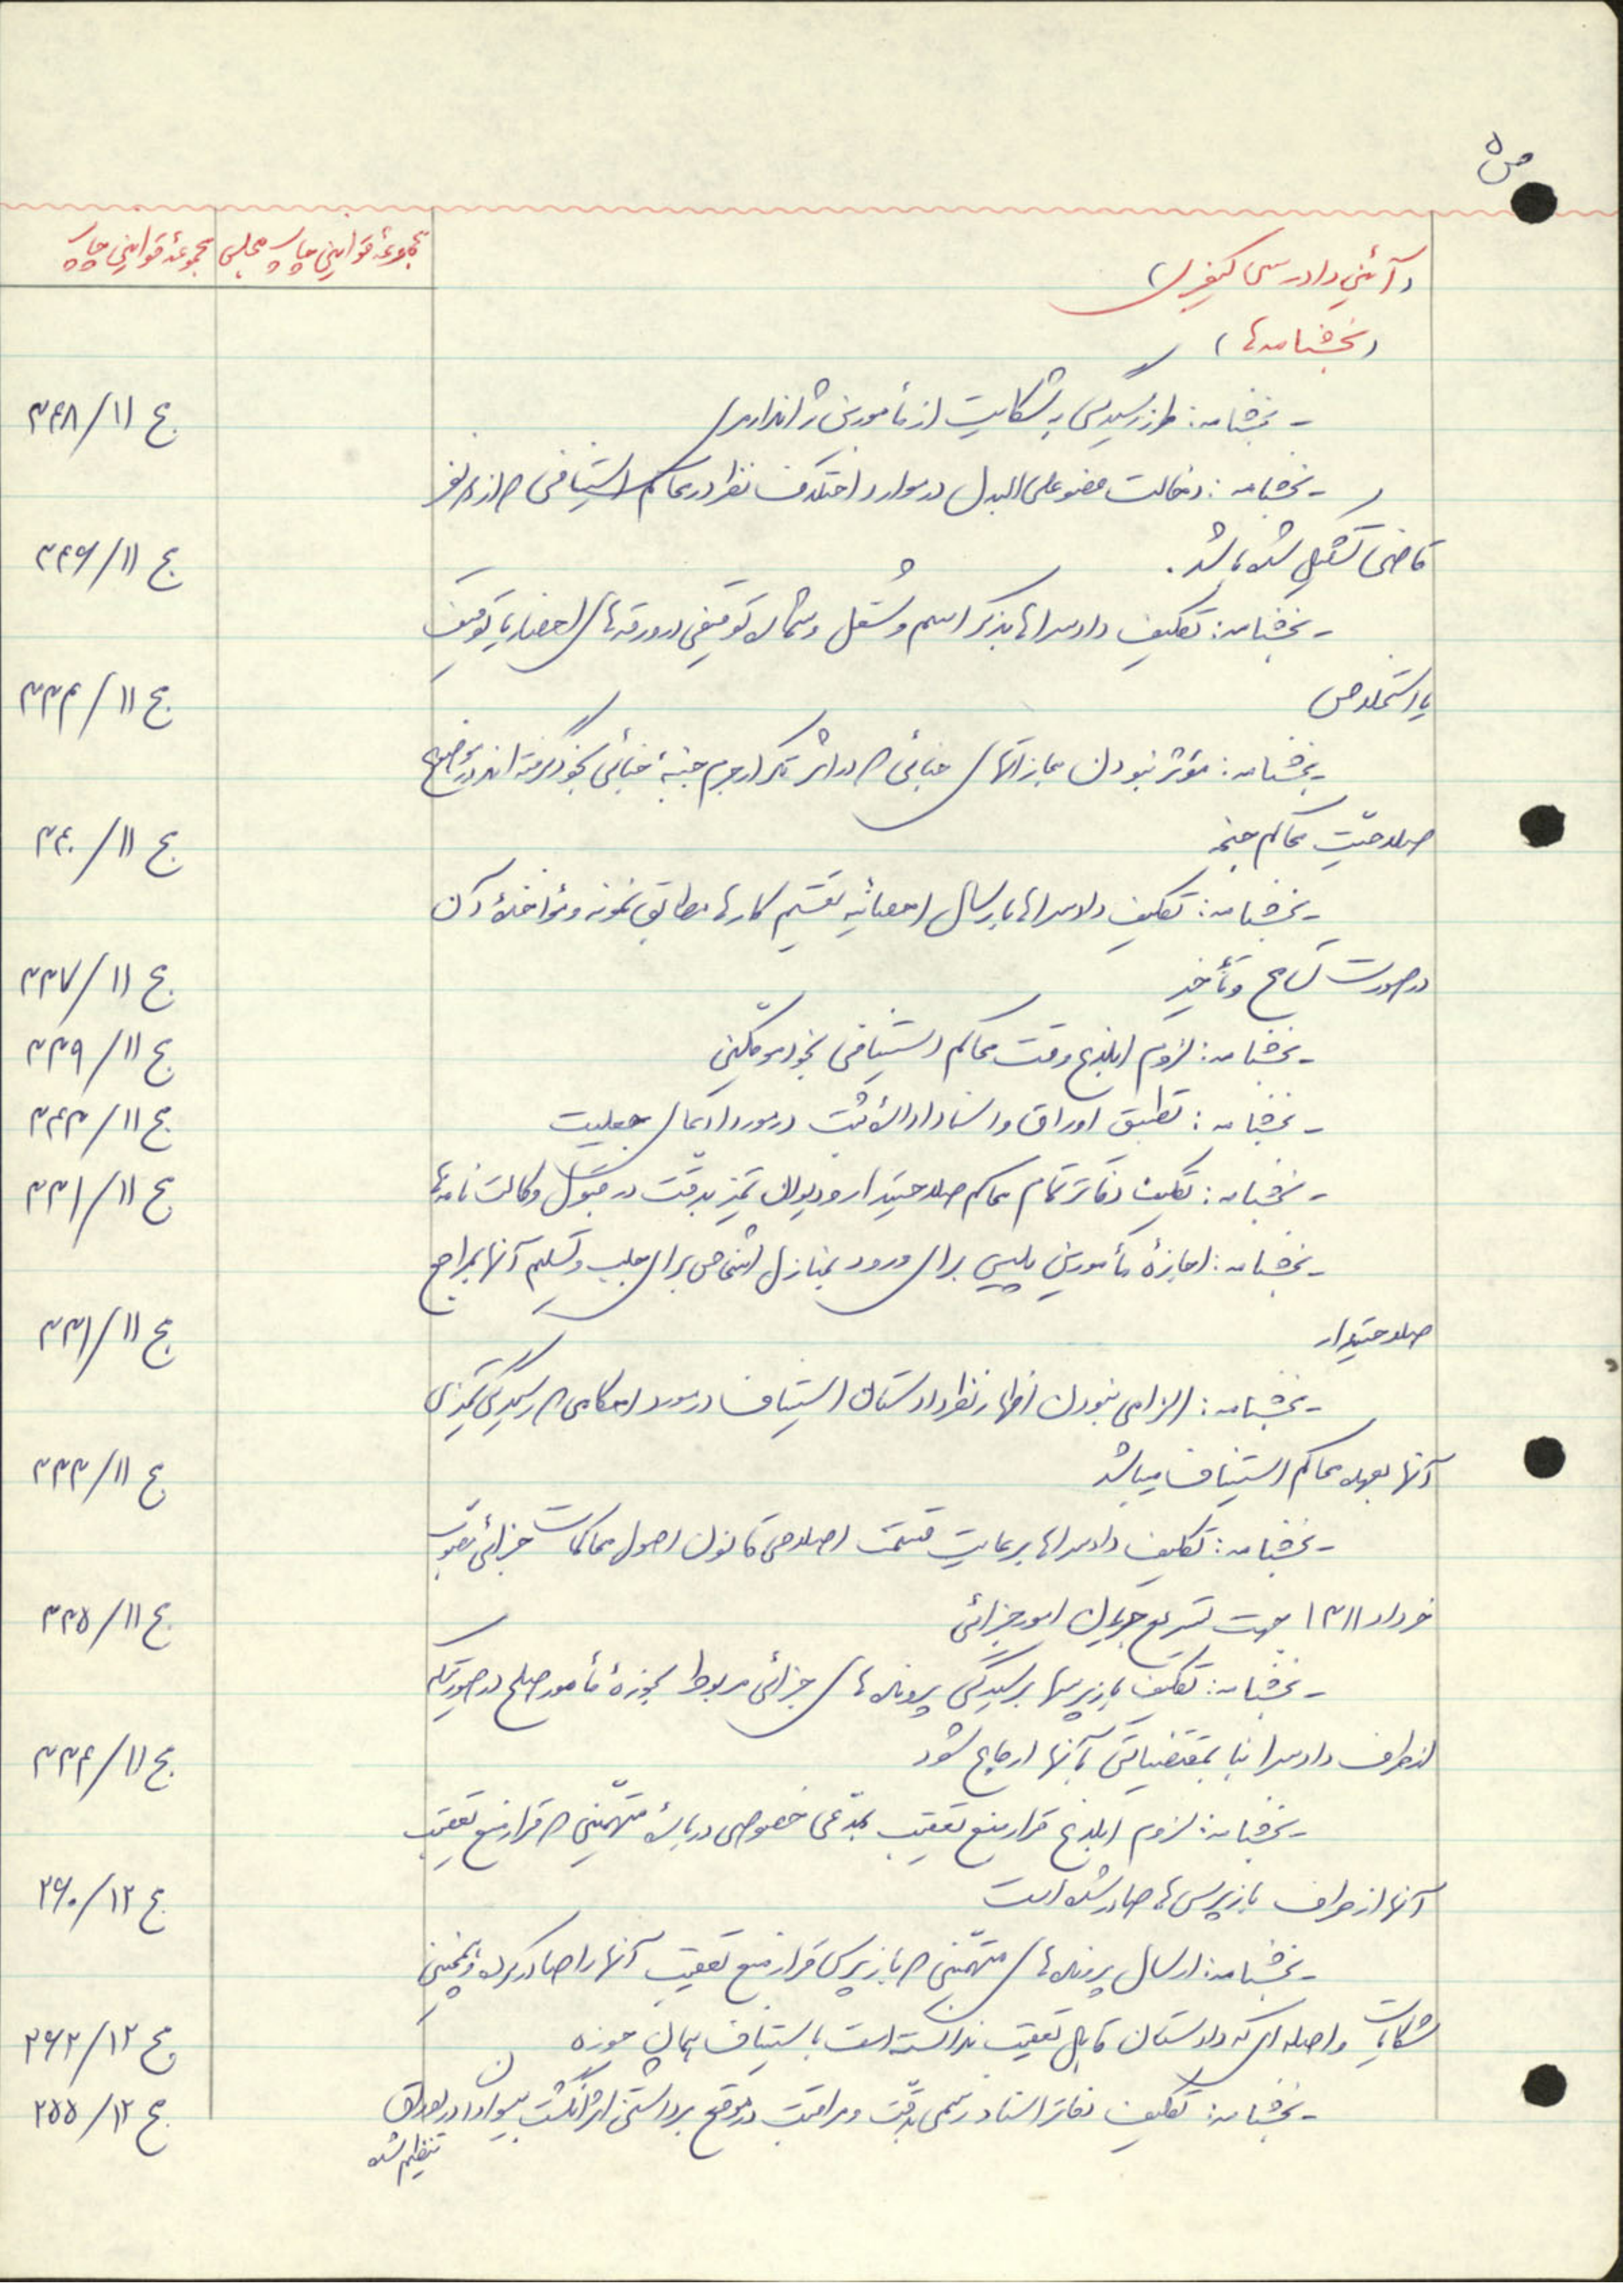 ص ۵
مجموعهٔ قوانین چاپ مجلس
مجموعهٔ قوانین چاپ
(آئین دادرسی کیفری)
(بخشنامه‌ها)
- بخشنامه: طرز رسیدگی به شکایت از مأمورین ژاندارمری
ج ۱۱/۳۴۸
- بخشنامه: دخالت عضو علی البدل در موارد اختلاف نظر در محاکم استینافی که از دو نفر
قاضی تشکیل شده باشد.
ج ۱۱/۳۴۶
- بخشنامه: تکلیف دادسراها بذکر اسم و شغل و شماره توقیفی در ورقه‌های احضار یا توقیف
یا استخلاص
ج ۱۱/۳۳۴
- بخشنامه: مؤثر نبودن مجازاتهای جنائی که در اثر تکرار جرم جنبهٔ جنائی بخود گرفته اند در موضوع
صلاحیّت محاکم جنحه
ج ۱۱/۳۴۰
- بخشنامه: تکلیف دادسراها بارسال احصائیه تقسیم کارها مطابق نمونه و مؤاخذهٔ آن
در صورت تسامح و تأخیر
ج ۱۱/۳۳۷
- بخشنامه: لزوم ابلاغ وقت محاکم استینافی بخود موکلین
ج ۱۱/۳۳۹
- بخشنامه: تطبیق اوراق و اسناد ادارهٔ ثبت در مورد ادعای جعلیت
ج ۱۱/۳۴۳
- بخشنامه: تکلیف دفاتر تمام محاکم صلاحیتدار و دیوان تمیز بدقت در قبول وکالت نامه‌ها
ج ۱۱/۳۳۱
- بخشنامه: اجازهٔ مأمورین پلیس برای ورود بمنازل اشخاص برای جلب و تسلیم آنها بمراجع
صلاحیتدار
ج ۱۱/۳۳۱
- بخشنامه: الزامی نبودن اظهار نظر دادستان استیناف در مورد احکامی که رسیدگی تمیزی
آنها بعهده محاکم استیناف میباشد
ج ۱۱/۳۳۳
- بخشنامه: تکلیف دادسراها برعایت قسمت اصلاحی قانون اصول محاکمات جزائی مصوب
خرداد ۱۳۱۱ جهت تسریع جریان امور جزائی
ج ۱۱/۳۳۵
- بخشنامه: تکلیف بازپرسها برسیدگی پرونده‌های جزائی مربوط بحوزهٔ مأمور صلح در صورتیکه
از طرف دادسرا بنا بمقتضیاتی بآنها ارجاع شود
ج ۱۱/۳۳۴
- بخشنامه: لزوم ابلاغ قرار منع تعقیب بمدّعی خصوصی دربارهٔ متهمینی که قرار منع تعقیب
آنها از طرف بازپرس‌ها صادر شده است
ج ۱۲/۲۶۰
- بخشنامه: ارسال پرونده‌های متهمینی که بازپرس قرار منع تعقیب آنها را صادر کرده و همچنین
شکایات واصله ای که دادستان قابل تعقیب ندانسته است باستیناف همان حوزه
ج ۱۲/۲۶۲
- بخشنامه: تکلیف دفاتر اسناد رسمی بدقّت و مراقبت در موقع برداشتن اثر انگشت بیسوادان در اوراق
تنظیم شده
ج ۱۲/۲۵۵